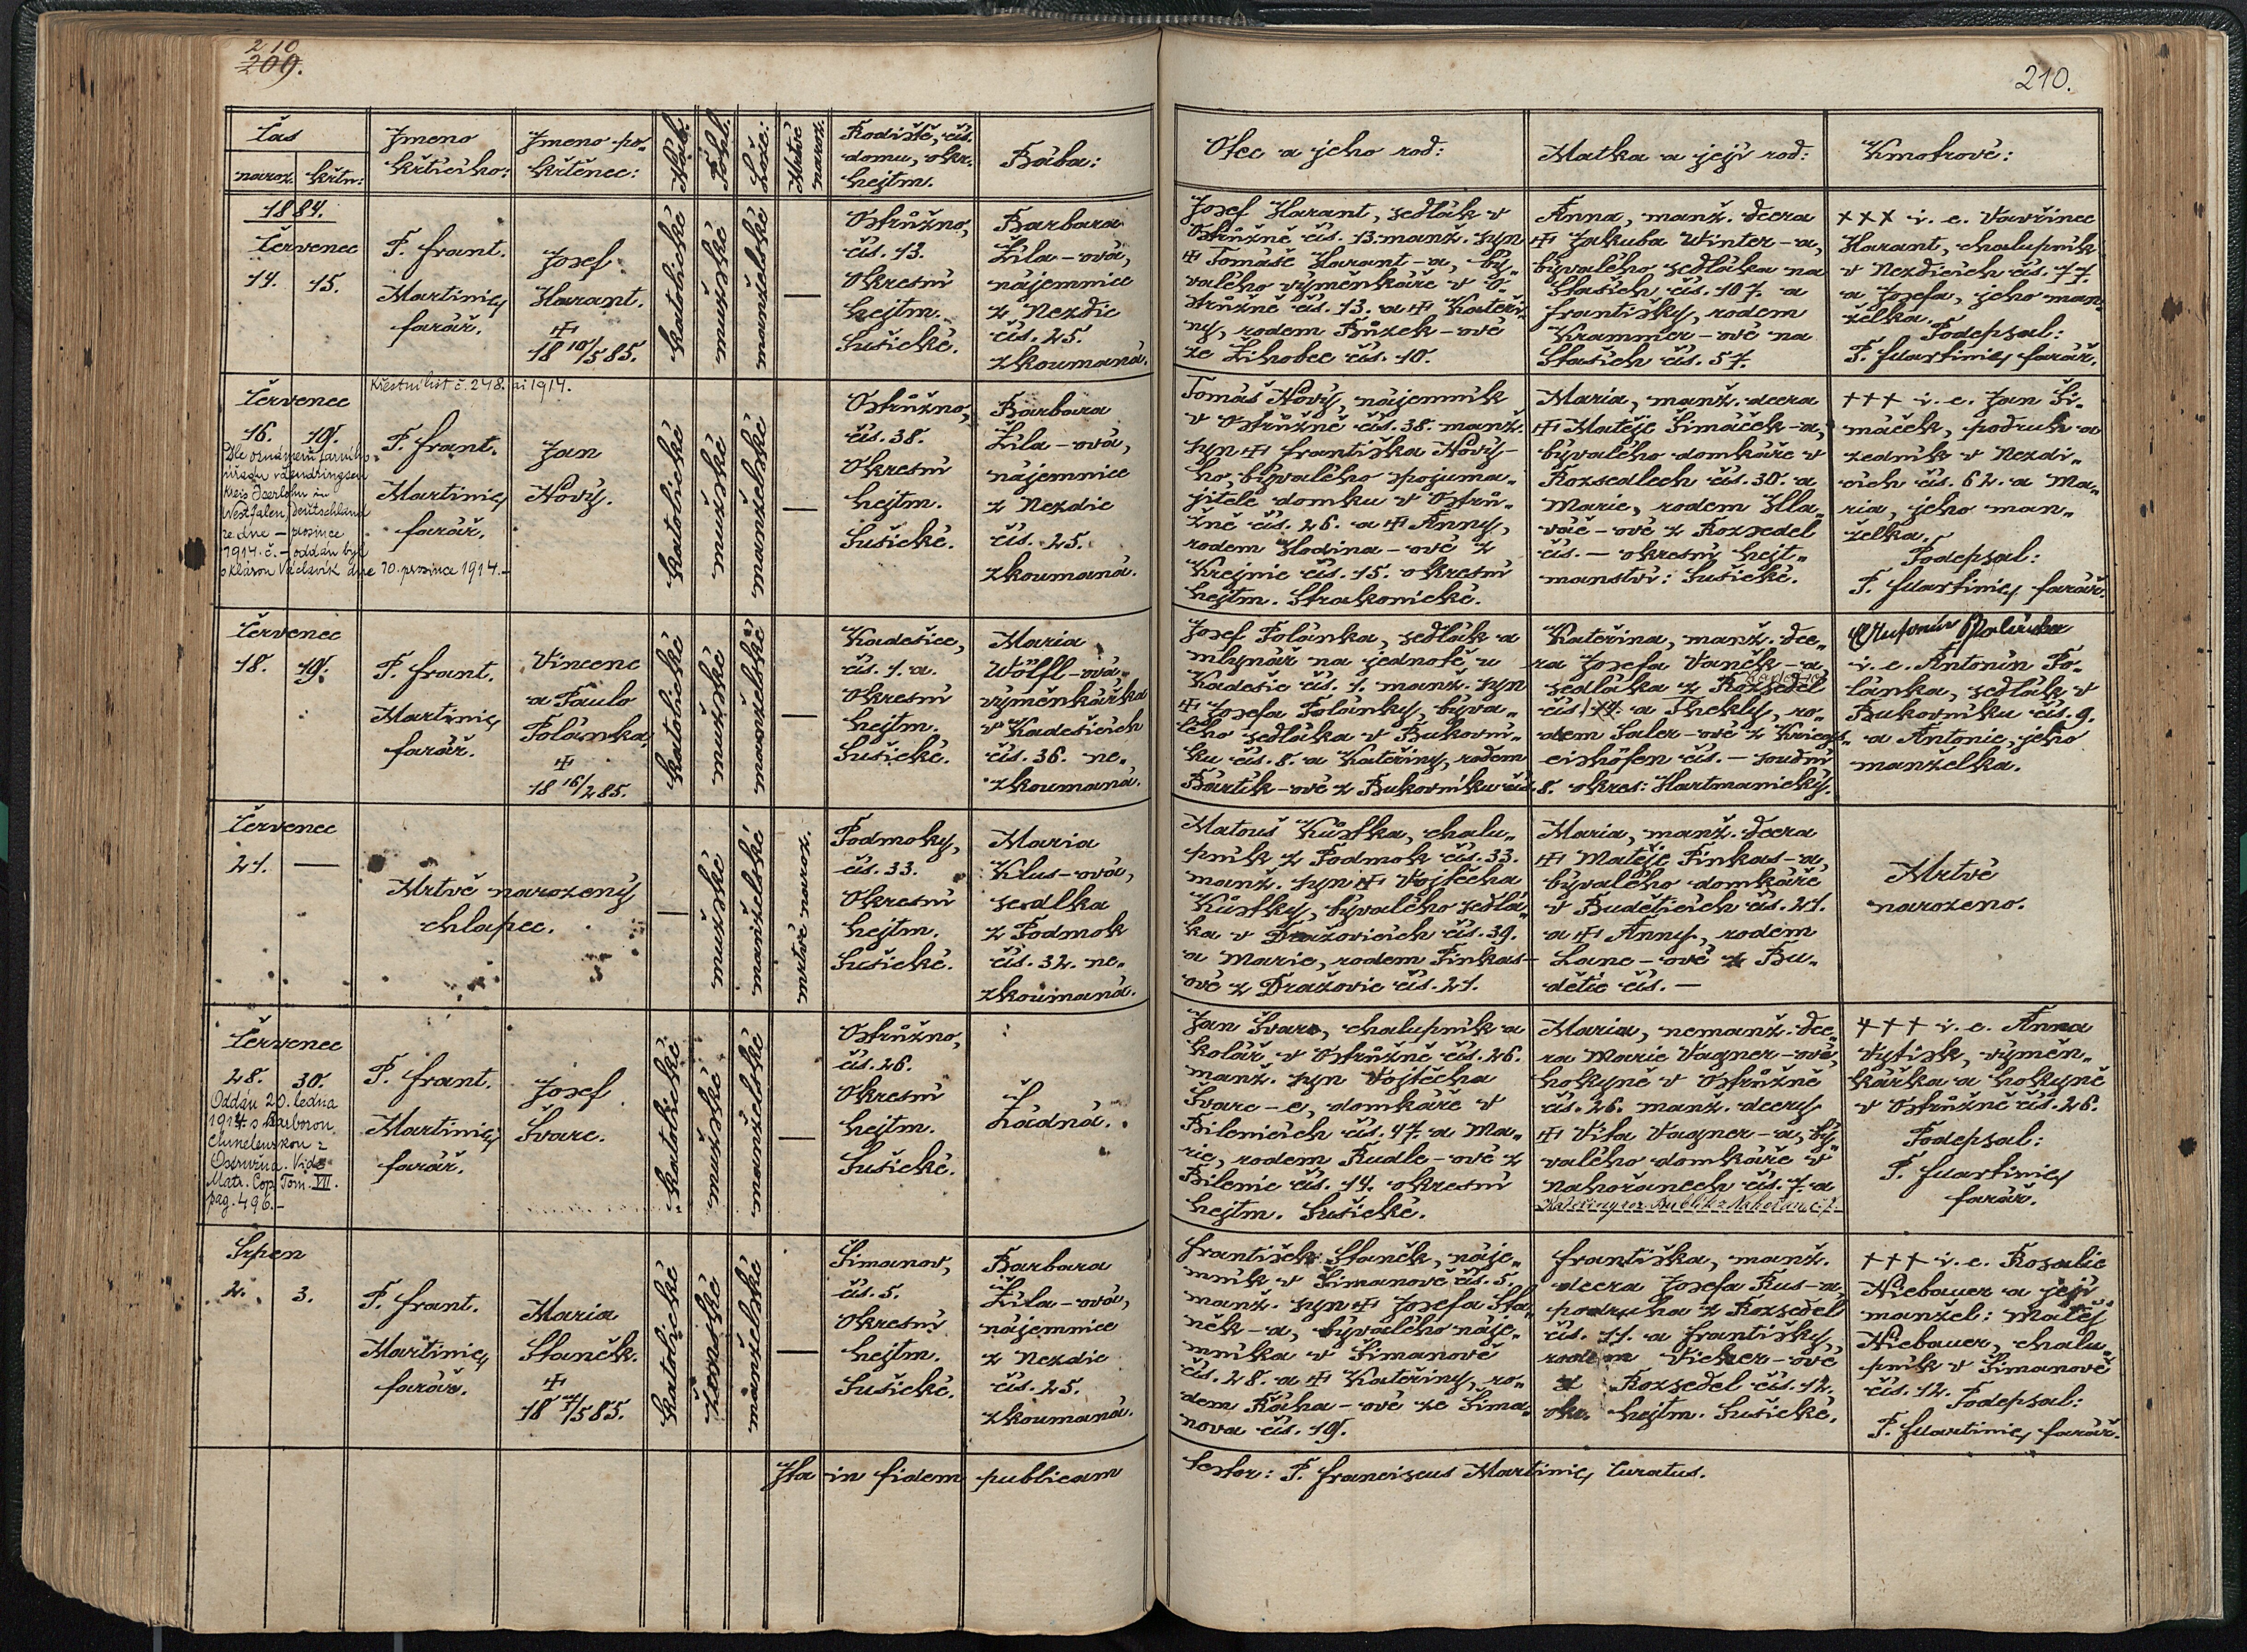 210
209.
210.
Čas
naroz. křtu:
Jmeno
křtícího:
Jmeno po-
křtěnce:
Náb.
Pohl.
Lože:
Mrtvě
naroz.
Rodiště, čís.
domu, okr.
hejtm.
Bába:
Otec a jeho rod:
Matka a její rod:
Kmotrové:
1884.
Červenec
14. 15.
P. Frant.
Martinic,
farář.
Josef
Harant.
+
18 10/5 85.
katolické
mužské
manželské
—
Ostružno,
čís. 13.
Okresní
hejtm.
Sušické.
Barbara
Žila-ová,
nájemnice
z Nezdic
čís. 25.
zkoumaná.
Josef Harant, sedlák v
Ostružně čís. 13. manž. syn
+ Tomáše Harant-a, bý-
valého výměnkáře v O-
stružně čís. 13. a + Kateři-
ny, rodem Bůzek-ové
ze Žihobec čís. 10.
Anna, manž. dcera
+ Jakuba Winter-a,
bývalého sedláka na
Stašich čís. 107. a
Františky, rodem
Krammer-ové na
Stašich čís. 57.
+++ i. e. Vavřinec
Harant, chalupník
v Nezdicích čís. 77.
a Josefa, jeho man-
želka.
Podepsal:
P. Martinic, farář.
Křestní list č. 248. ai 1914.
Červenec
16. 19.
Dle oznámení farního
úřadu v Lendringsen
Kreis Iserlohn in
Westfalen, Deutschland
ze dne — prosince
1914. č. — oddán byl
s Klárou Václavík dne 10. prosince 1914.
P. Frant.
Martinic,
farář.
Jan
Nový.
katolické
mužské
manželské
—
Ostružno,
čís. 38.
Okresní
hejtm.
Sušické.
Barbara
Žila-ová,
nájemnice
z Nezdic
čís. 25.
zkoumaná.
Tomáš Nový, nájemník
v Ostružně čís. 38. manž.
syn + Františka Nový-
ho, bývalého spojuma-
jitele domku v Ostru-
žně čís. 26. a + Anny,
rodem Hodina-ové z
Krejnic čís. 15. okresní
hejtm. Strakonické.
Maria, manž. dcera
+ Matěje Šimáček-a,
bývalého domkáře v
Rozsedlech čís. 30. a
Marie, rodem Hla-
váč-ové z Rozsedel
čís. — okresní hejt-
manství: Sušické.
+++ i. e. Jan Ši-
máček, podruh a
zedník v Nezdi-
cích čís. 62. a Ma-
ria, jeho man-
želka.
Podepsal:
P. Martinic, farář.
Červenec
18. 19.
P. Frant.
Martinic,
farář.
Vincenc
a Paulo
Polanka.
+
18 16/2 85.
katolické
mužské
manželské
—
Kadešice,
čís. 1. a.
Okresní
hejtm.
Sušické.
Maria
Wölfl-ová
výměnkářka
v Kadešicích
čís. 36. ne-
zkoumaná.
Josef Polánka, sedlák a
mlynář na jednotě u
Kadešic čís. 1. manž. syn
+ Josefa Polánky, býva-
lého sedláka v Bukovní-
ku čís. 8. a Kateřiny, rodem
Bártík-ové z Bukovníku čís. 8.
Kateřina, manž. dce-
ra Josefa Vaněk-a,
sedláka z Rozsedel
čís. 14. a Thekly, ro-
dem Saler-ové z Kriegs-
eishöfen čís. — soudní
okres: Hartmanický.
Antonín Polánka
i. e. Antonín Po-
lánka, sedlák v
Bukovníku čís. 9.
a Antonie, jeho
manželka.
Červenec
21. —
Mrtvě narozený
chlapec.
—
mužské
manželské
mrtvě naroz.
Podmoky,
čís. 33.
Okresní
hejtm.
Sušické.
Maria
Klus-ová,
sedlka
z Podmok
čís. 32. ne-
zkoumaná.
Matouš Kůstka, chalu-
pník z Podmok čís. 33.
manž. syn + Vojtěcha
Kůstky, bývalého sedlá-
ka v Dražovicích čís. 39.
a Marie, rodem Pinkas-
ové z Dražovic čís. 21.
Maria, manž. dcera
+ Matěje Pinkas-a,
bývalého domkáře
v Budětících čís. 21.
a + Anny, rodem
Lanc-ové z Bu-
dětic čís. —
Mrtvě
narozeno.
Červenec
28. 30.
Oddán 20. ledna
1914 s Barborou
z
Ostružna. Vide
Matr. Cop. Tom. VII.
pag. 496.—
P. Frant.
Martinic,
farář.
Josef
Švarc.
katolické
mužské
manželské
—
Ostružno,
čís. 26.
Okresní
hejtm.
Sušické.
Žádná.
Jan Švarc, chalupník a
kolář v Ostružně čís. 26.
manž. syn Vojtěcha
Švarc-e, domkáře v
Bílenicích čís. 47. a Ma-
rie, rodem Rudle-ové z
Bílenic čís. 14. okresní
hejtm. Sušické.
Maria, nemanž. dce-
ra Marie Vagner-ové,
hokyně v Ostružně
čís. 26. manž. dcery
+ Víta Vagner-a, bý-
valého domkáře v
Nahořanech čís. 7. a
+++ i. e. Anna
Vytisk, výměn-
kářka a hokyně
v Ostružně čís. 26.
Podepsal:
P. Martinic,
farář.
Srpen
2. 3.
P. Frant.
Martinic,
farář.
Maria
Staněk.
+
18 7/5 85.
katolické
ženské
manželské
—
Šimanov,
čís. 5.
Okresní
hejtm.
Sušické.
Barbara
Žila-ová,
nájemnice
z Nezdic
čís. 25.
zkoumaná.
František Staněk, náje-
mník v Šimanově čís. 5.
manž. syn + Josefa Sta-
něk-a, bývalého náje-
mníka v Šimanově
čís. 28. a + Kateřiny, ro-
dem Řáha-ové ze Šima-
nova čís. 19.
Františka, manž.
dcera Josefa Rus-a,
podruha z Rozsedel
čís. 11. a Františky,
rodem Vicher-ové
z Rozsedel čís. 12.
okr. hejtm. Sušické.
+++ i. e. Rosalie
Niebauer a její
manžel: Matěj
Niebauer, chalu-
pník v Šimanově
čís. 12. Podepsal:
P. Martinic, farář.
Ita in fidem publicam
testor: P. Franciscus Martinic, Curatus.